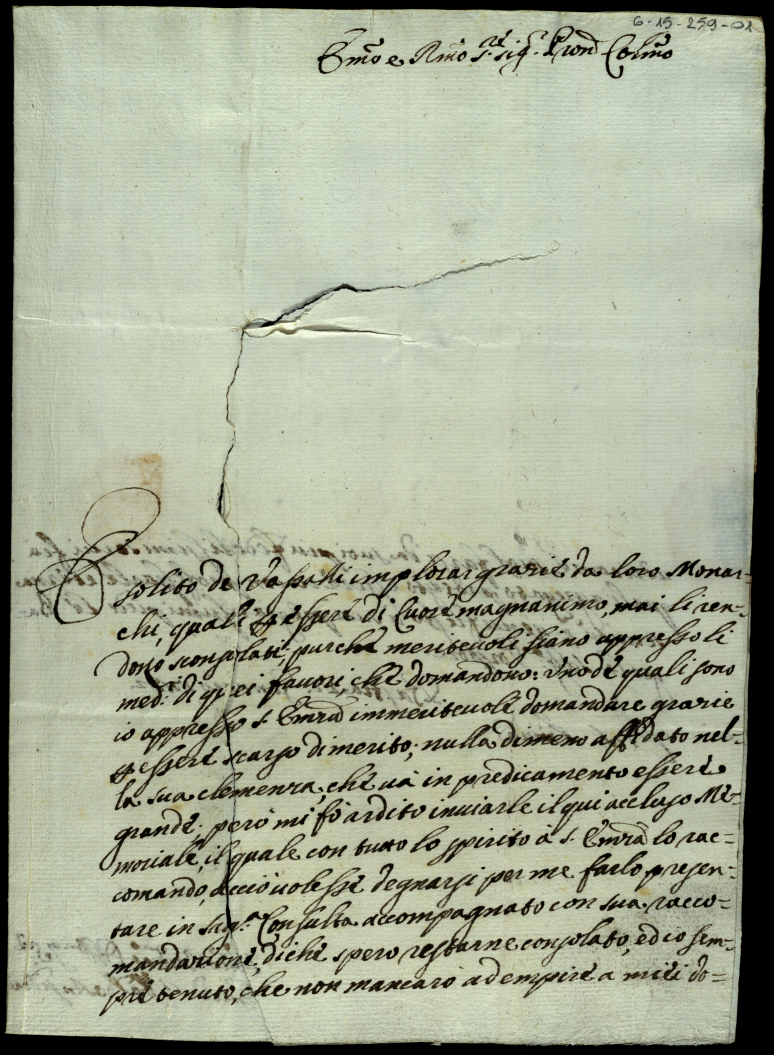 6-15-259-01
Emo e Rmo S.re Sig.r Pron Colmo
È solito de Vassalli implorar grazie da loro Monar-
chi, quali p essere di Cuore magnanimo, mai li ren-
dono sconsolati, purche meritevoli siano appresso li
med: di quei favori, che domandono: Uno de quali sono
io appresso S. Emza immeritevole domandare grazie
p essere scarso di merito; nulla dimeno affidato nel-
la sua clemenza, che và in predicamento essere
grande; però mi fò ardito inviarle il qui accluso Me-
moriale, il quale con tutto lo spirito a S. Emza lo rac-
comando, acciò volesse degnarsi per me farlo presen-
tare in Sag.a Consulta accompagnato con sua racco-
mandazione, di che spero restarne consolato, ed io sem-
pre tenuto, che non mancarò ad empire a miei do-